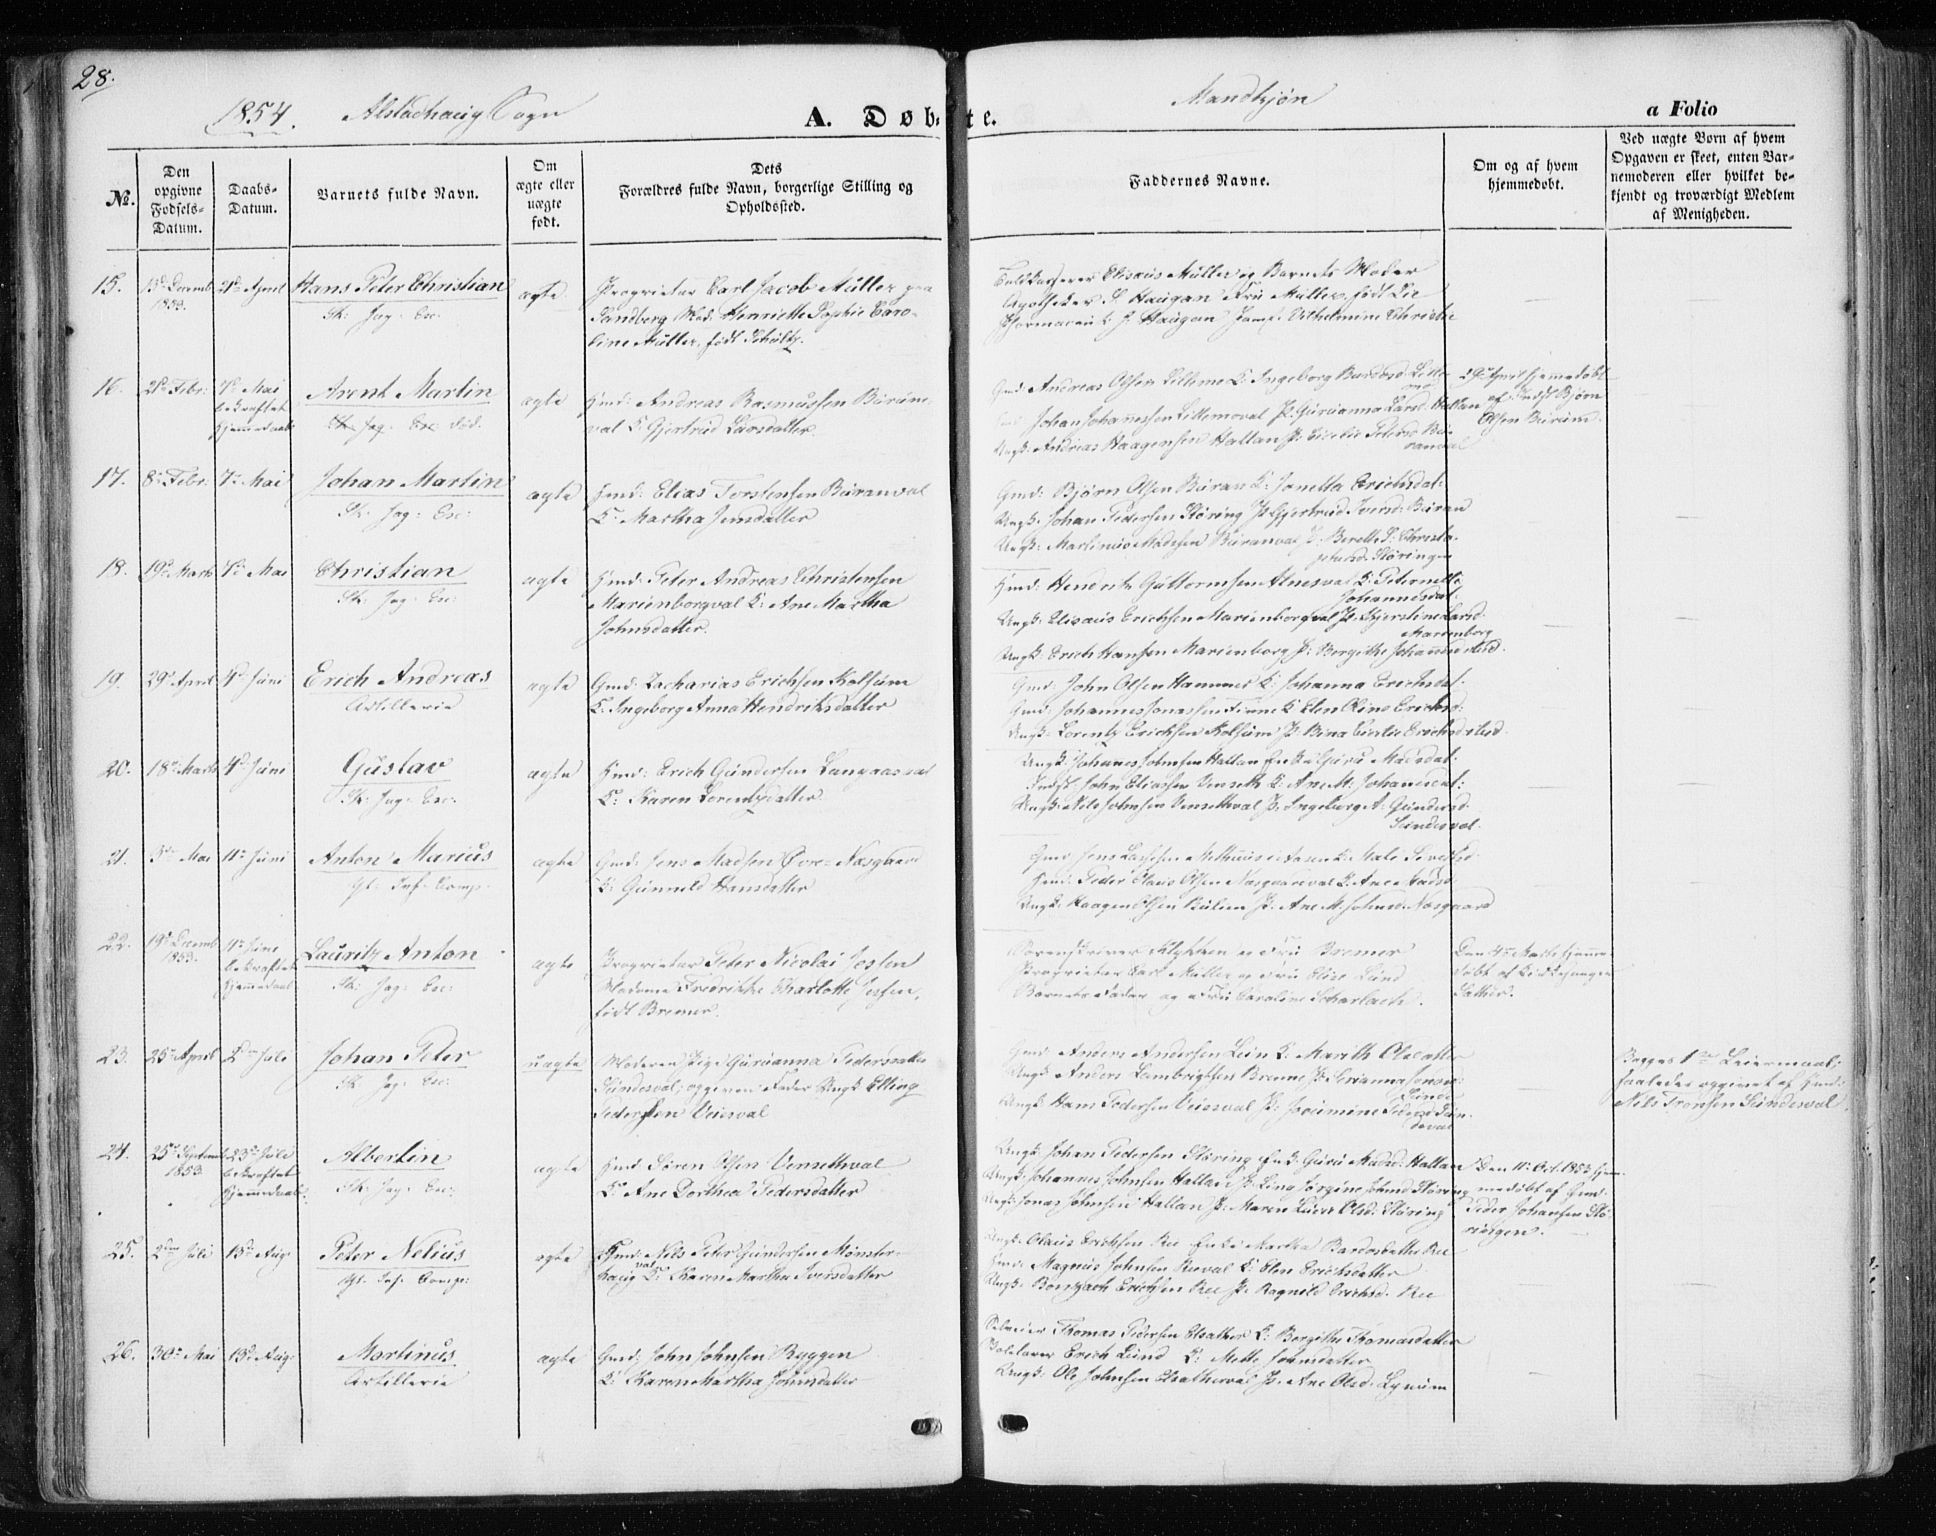 28.
1854. Alstadhaug Sogn
A. Døb-
te.
Mandkjøn
a Folio
No.
Den opgivne Fødsels-Datum.
Daabs-Datum.
Barnets fulde Navn.
Om ægte eller uægte født.
Dets Forældres fulde Navn, borgerlige Stilling og Opholdssted.
Faddernes Navne.
Om og af hvem hjemmedøbt.
Ved uægte Børn af hvem Opgaven er skeet, enten Barnemoderen eller hvilket bekjendt og troværdigt Medlem af Menigheden.
15.
13de Decemb 1853.
Hans Peter Christian
ægte
Proprietær Carl Jacob Müller paa
Sandberg Mad: Henriette Sophie Caro-
line Müller, født Schültz.
Elisæus Müller og Barnets Moder
Apotheker Haugan Fru Müller, født Lie
Haugan Jomf. Vilhelmine Christie
16.
Febr:
7de Mai
bekræftet
Hjemmedaab
Arent Martin
død.
ægte
Hmd: Andreas Rasmussen Büran
val K: Gjertrud Larsdatter.
Andreas Olsen Lillemo K: Ingeborg
Johan Johannessen Lillemoval P: Gurianna Larsd: Hallan
Ungk: Andreas Haagensen Hallan P:
April hjemmedøbt
af Bjørn
Olsen Büran.
17.
8de Febr:
7de Mai
Johan Martin
Sk: Jag: Esc:
ægte
Hmd: Elias Torstensen Büranval
K: Martha Jensdatter
Gmd: Bjørn Olsen Büran K: Jonetta Erichsdat:
Ungk: Johan Pedersen Støring P: Gjertrud Iversd: Büran
Ungk: Martinus Madsen Büranval P: Berette
Støringen
18.
19de Marts
7de Mai
Christian
Sk: Jag: Esc:
ægte
Hmd: Peter Andreas Christensen
Marienborgval K: Ane Martha
Johnsdatter.
Hmd: Hendrik Guttormsen Alnesval K: Peternelle
Johannesdat:
Ungk: Elisæus Erichsen Marienborgval P: Kjerstine Larsd:
Marienborg
Ungk: Erich Hansen Marienborg P: Bergithe Johannesd: sted.
19.
29de April
4de Juni
Erich Andreas
Artillerie
ægte
Gmd: Zacharias Erichsen Kolsum
K: Ingeborg Anna Hendriksdatter
Gmd: John Olsen Hammer K: Johanna Erichsdat:
Gmd: Johannes Jonassen K: Elen Oline Erichsd:
Ungk: Lorentz Erichsen Kolsum P: Erichsd: sted.
20.
18de Marts
4de Juni
Gustav
Sk: Jag: Esc:
ægte
Hmd: Erich Gundersen Langaasval
K: Karen Lorentzdatter
Ungk: Johannes Johnsen Hallan Enke Guru Madsdat:
Indst: John Eliassen Venseth K: Ane M: Johansdat:
Ungk: Nils Johnsen Vensethval P: Ingeborg A: Gundersd:
Sundesval.
21.
3de Mai
11te Juni
Anton Marius
Gl: Inf: Comp:
ægte
Gmd: Jens Madsen Øvre-Næsgaard
K: Gunneld Hansdatter
Gmd: Jens K: Mali
Hmd: Peder Claus Olsen Næsgaardval K: Ane Madsd:
Ungk: Haagen Olsen P: Ane M: Johnsd: Næsgaard
22.
19de Decemb
1853.
11te Juni
bekræftet
Hjemmedaab
Lauritz Anton
Sk: Jag: Esc:
ægte
Proprietær Peter Nicolai Jessen
Madame Fredrikke Charlotte Jessen,
født Bremer.
Sorenskriver Klykken og Fru Bremer
Proprietær Carl Müller og Fru Elise Lund
Barnets Fader og Fru Caroline Scharlach.
Den 4de Marts hjemme-
døbt af Kirkesanger
Sather.
23.
25de April
2den Juli
Johan Peter
Sk: Jag: Esc:
uægte
Moderen Pige Gurianna Pedersdatter
Sundesval; opgiven Fader Ungk: Elling
Pedersen Veiesval
Gmd: Anders Andersen Lein K: Marith Olsdatter
Ungk: Anders Lambrigtsen Brenne P: Serianna
Sunde
Ungk: Hans Pedersen Veiesval P: Jocumine Pedersd: Sun-
desval
Begges 1ste Leiermaal;
saaledes opgivet af Hmd:
Nils Tronsen Sundesval.
24.
25de Septemb
1853
23de Juli
bekræftet
Hjemmedaab
Albertin
Sk: Jag: Esc:
ægte
Hmd: Søren Olsen Vensethval
K: Ane Dorthea Pedersdatter
Ungk: Johan Pedersen Støring Enke Guru Madsd: Hallan
Ungk: Johannes Johnsen Hallan P: Jørgine Johnsd: Støring
Ungk: Jonas Johnsen Hallan P: Maren Olsd: Støring
Den 11te Oct. 1853 hjem-
medøbt af Hmd:
Peder Johansen Stø-
ringen.
25.
2den Juli
13de Aug:
Peter Nelius
Gl: Inf: Comp:
ægte
Hmd: Nils Peter Gundersen Mønster-
haugval K: Karen Martha Iversdatter
Ungk: Olaus Erichsen Ree Enke Martha Bardosdatter Ree
Hmd: Magnus Johnsen Reeval K: Elen Erichsdatter
Ungk: Erichsen Ree P: Ragnild Erichsd: Ree
26.
30te Mai
13de Aug:
Martinus
Artillerie
ægte
Gmd: John Johnsen Byggen
K: Karen Martha Johnsdatter
Selveier Thomas Pedersen K: Bergithe Thomasdatter
Erich Lund K: Mette Johnsdatter
Ungk: Ole Johnsen P: Ane Olsd: Lynum